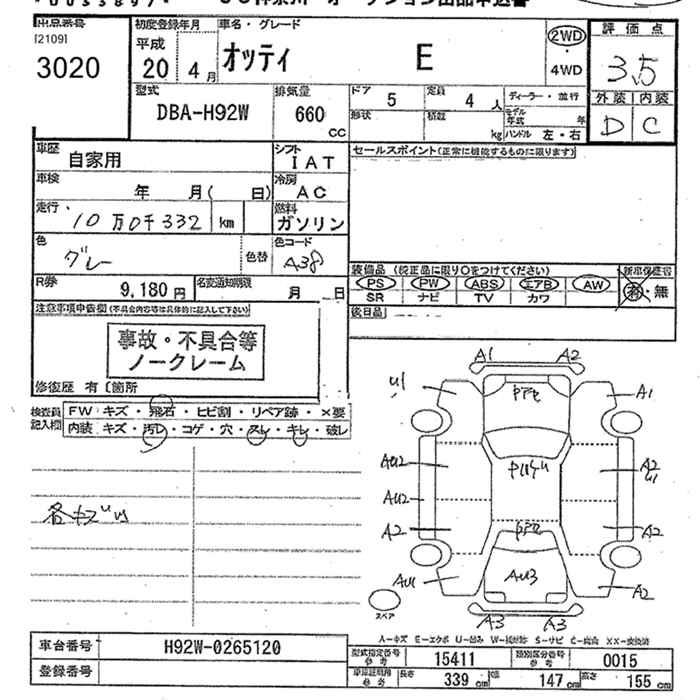 出品番号
[2109]
3020
初度登録年月
平成
20 年 4 月
車名・グレード
オッティ E
2WD
4WD
評価点
3.5
外装 内装
D C
型式
DBA-H92W
排気量
660
CC
ドア 5
定員 4 人
ディーラー・並行
形状
積載 kg
モデル年式 年
ハンドル 左・右
車歴
自家用
シフト
IAT
セールスポイント(正常に機能するものに限ります)
車検
年 月( 日)
冷房
AC
走行
10万0千332 km
燃料
ガソリン
色
グレー
色替
色コード
A38
装備品 (純正品に限り○をつけてください)
新車保証書
PS PW ABS エアB AW
SR ナビ TV カワ
有・無
R券
9,180 円
名変通知期限
月 日
後日品
注意事項申告欄(不具合内容等は具体的に記入して下さい)
事故・不具合等
ノークレーム
修復歴 有 [箇所
検査員
記入欄
FW キズ・飛石・ヒビ割・リペア跡・×要
内装 キズ・汚レ・コゲ・穴・スレ・キレ・破レ
A1 A2
U1 A1
AU2 A2
U1
AU2
A2 A2
AU1 AU3 A2
A3 A3
スペア
車台番号
H92W-0265120
登録番号
型式指定番号
参考
15411
類別区分番号
参考
0015
車庫証明用
参考
長さ 339 cm
幅 147 cm
高さ 155 cm